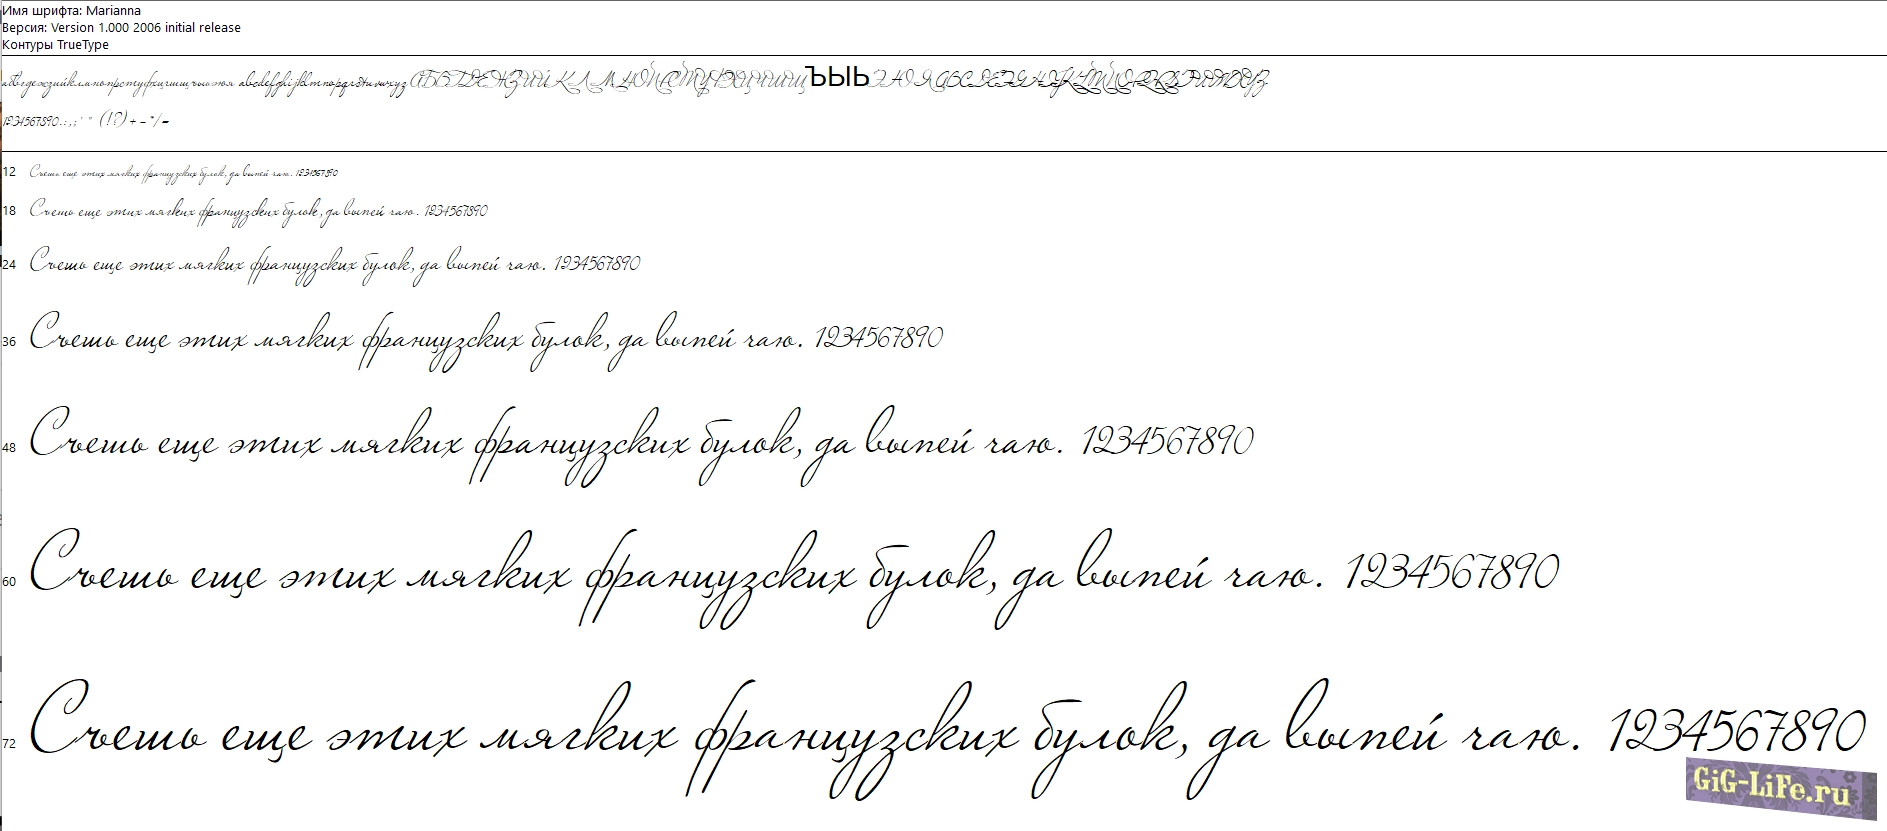 Имя шрифта: Marianna
Версия: Version 1.000 2006 initial release
Контуры TrueType
абвгдежзийклмнопрстуфхцчшщъыьэюя abcdefghijklmnopqrstuvwxyz АБВГДЕЖЗИЙКЛМНОПРСТУФХЦЧШЩЪЫЬЭЮЯ ABCDEFGHIJKLMNOPQRSTUVWXYZ
1234567890.:,;' " (!?)+-*/=
12 Съешь еще этих мягких французских булок, да выпей чаю. 1234567890
18 Съешь еще этих мягких французских булок, да выпей чаю. 1234567890
24 Съешь еще этих мягких французских булок, да выпей чаю. 1234567890
36 Съешь еще этих мягких французских булок, да выпей чаю. 1234567890
48 Съешь еще этих мягких французских булок, да выпей чаю. 1234567890
60 Съешь еще этих мягких французских булок, да выпей чаю. 1234567890
72 Съешь еще этих мягких французских булок, да выпей чаю. 1234567890
GiG-LiFe.ru